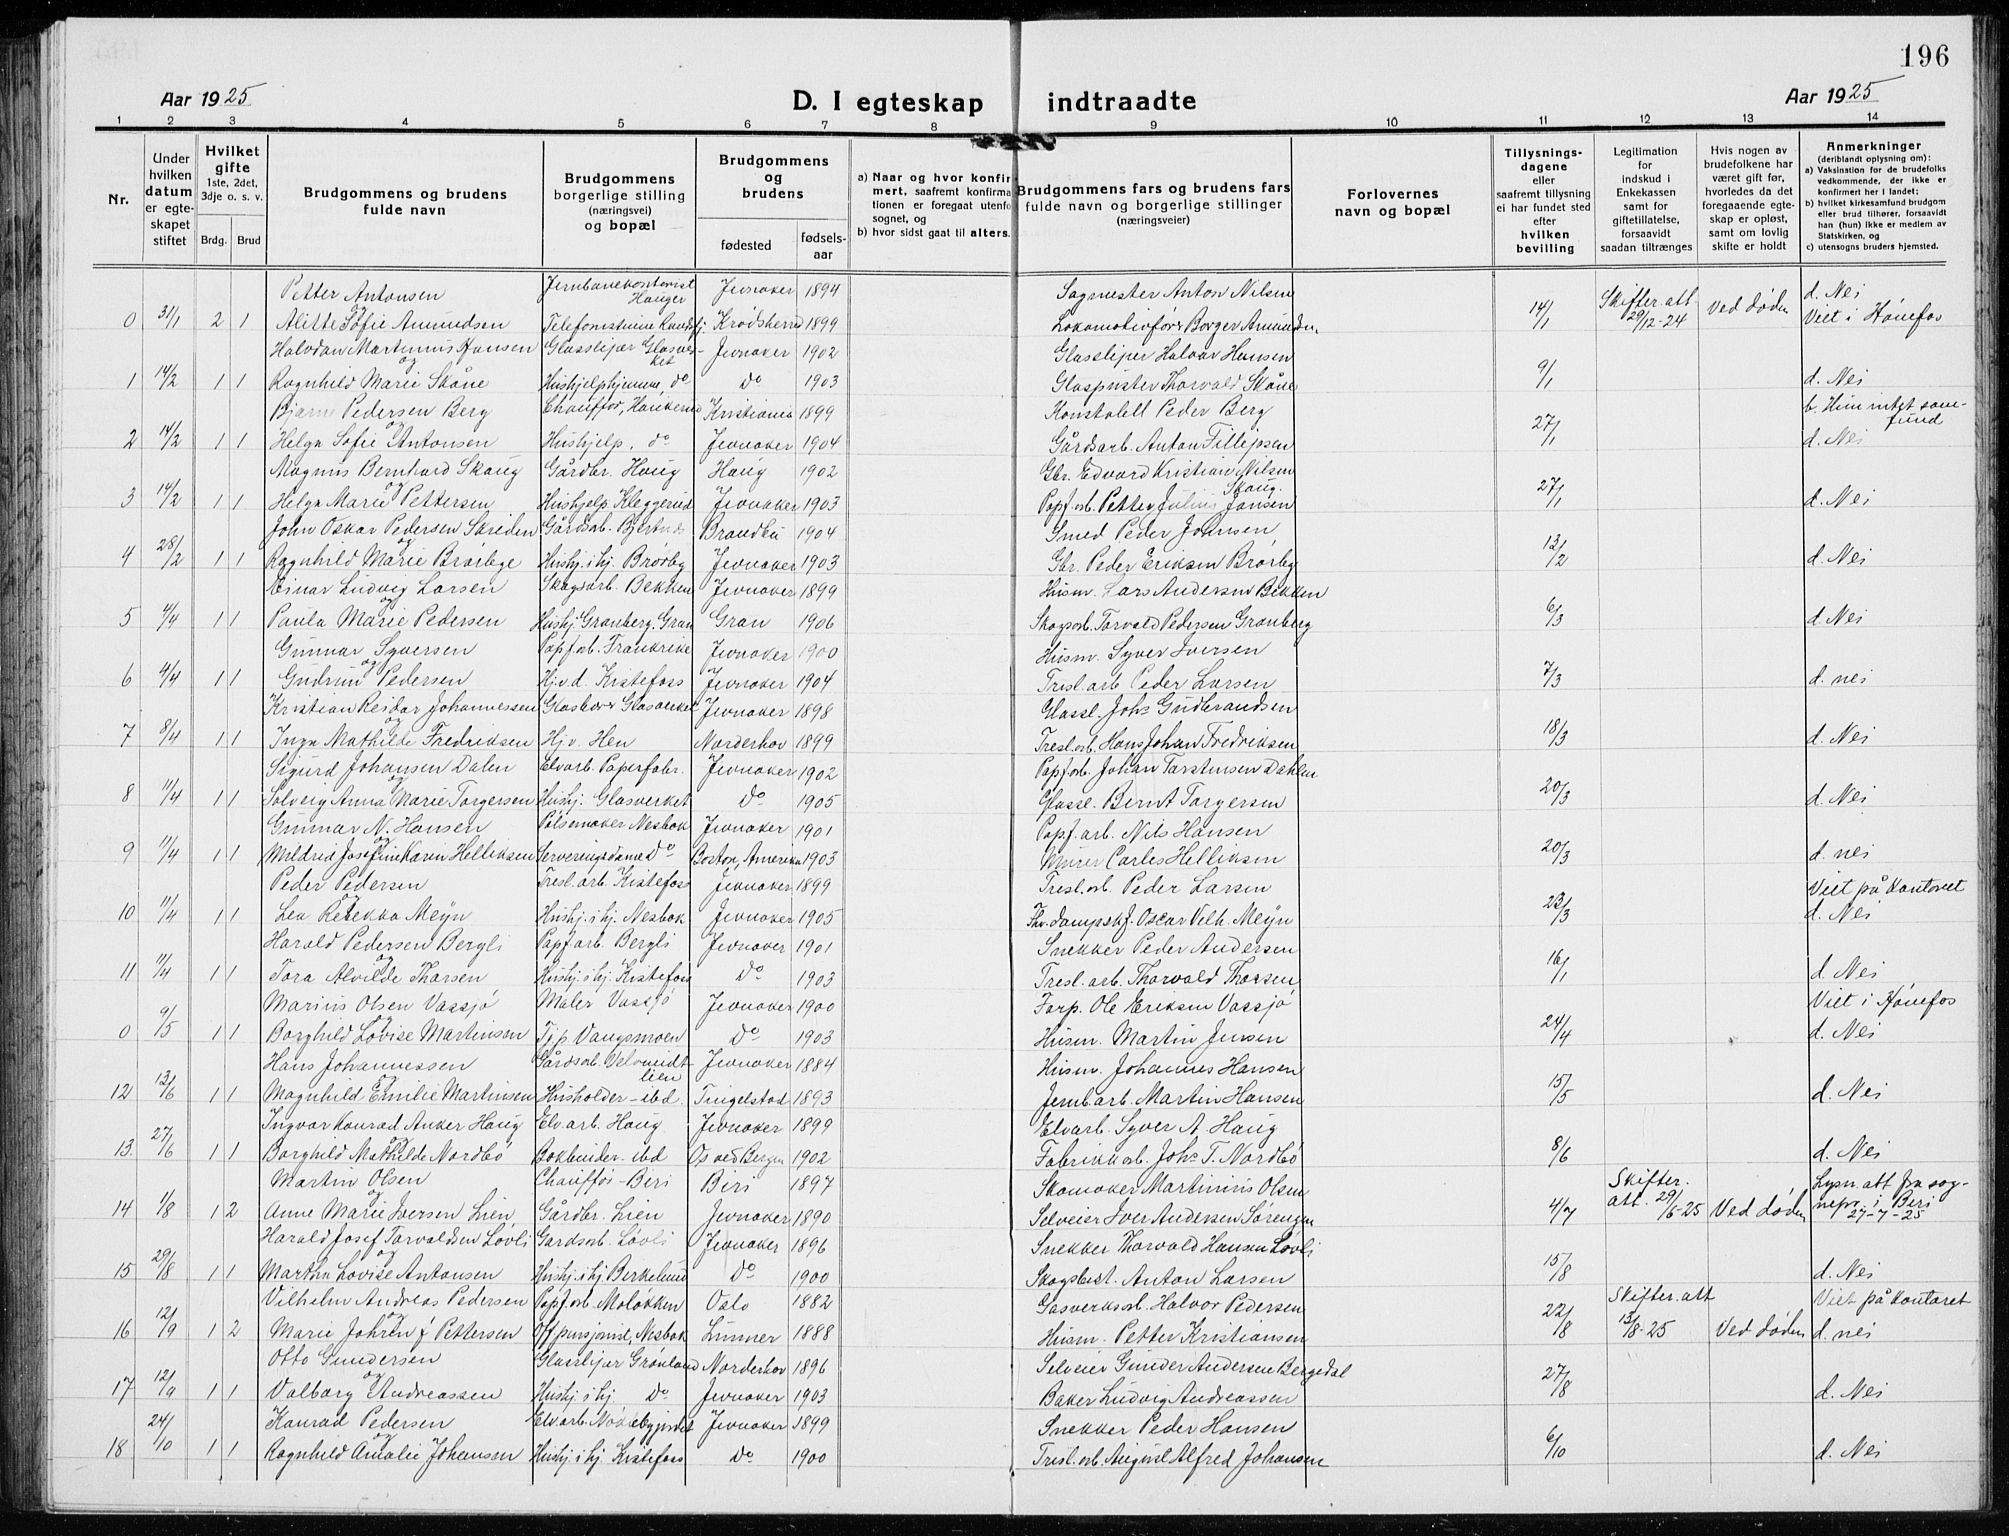 196
Aar 1925
D. I egteskap indtraadte
Aar 1925
1 2 3 4 5 6 7 8 9 10 11 12 13 14
Nr.
Under hvilken datum er egteskapet stiftet
Hvilket gifte 1ste, 2det, 3dje o. s. v.
Brdg. Brud
Brudgommens og brudens fulde navn
Brudgommens borgerlige stilling (næringsvei) og bopæl
Brudgommens og brudens
fødested
fødselsaar
a) Naar og hvor konfirmert, saafremt konfirmationen er foregaat utenfo sognet, og
b) hvor sidst gaat til alters.
Brudgommens fars og brudens fars fulde navn og borgerlige stillinger (næringsveier)
Forlovernes navn og bopæl
Tillysningsdagene eller saafremt tillysning ei har fundet sted efter hvilken bevilling
Legitimation for indskud i Enkekassen samt for giftetillatelse, forsaavidt saadan tiltrænges
Hvis nogen av brudefolkene har været gift før, hvorledes da det foregaaende egteskap er opløst, samt om lovlig skifte er holdt
Anmerkninger (deriblandt oplysning om):
a) Vaksination for de brudefolks vedkommende, der ikke er konfirmert her i landet;
b) hvilket kirkesamfund brudgom eller brud tilhører, forsaavidt han (hun) ikke er medlem av Statskirken, og
c) utensogns bruders hjemsted.
Petter Antonsen Jernbanekontorist Hauger Jevnaker 1894 Sagmester Anton Nilsen d. Nei
0 31/1 2 1 og Alitte Sofie Amundsen Telefonistinne Randsfj. Krødsherred 1899 Lokomotivfører Borger Amundsen 14/1 Skifter.att. 29/12-24 Ved døden Viet i Hønefos
Halvdan Martinius Hansen Glassliper Glasverket Jevnaker 1902 Glassliper Halvor Hansen
1 14/2 1 1 og Ragnhild Marie Skåne Hushjelp hjemme, do do 1903 Glaspuster Thorvald Skåne 9/1 d. Nei
Bjarne Pedersen Berg Chauffør, Haukerud Kristiania 1899 Konstabel Peder Berg b. Him intet samfund
2 14/2 1 1 og Helga Sofie Antonsen Hushjelp. do Jevnaker 1904 Gårdsarb. Anton Fillipsen 27/1 d. Nei
Magnus Bernhard Skaug Gårdbr. Haug Haug 1902 Gbr. Edvard Kristian Nilsen Skaug.
3 14/2 1 1 og Helga Marie Pettersen Hushjelp Kleggerud Jevnaker 1903 Papf.arb. Petter Julius Jansen 27/1 d. Nei
John Oskar Pedersen Skriden Gårdsarb. Bjertnes Brandbu 1904 Smed Peder Johnsen
4 28/2 1 1 og Ragnhild Marie Brørbye Hushj. i hj. Brørby Jevnaker 1903 Gbr. Peder Eriksen Brørby 13/2 d. Nei
Einar Ludvig Larsen Skogsarb. Bekken Jevnaker 1899 Husm. Lars Andersen Bekken
5 4/4 1 1 og Paula Marie Pedersen Hushj. Granberg. Gran Gran 1906 Skogsarb. Torvald Pedersen Granberg 6/3 d. Nei
Gunnar Syversen Papf.arb. Frankrike Jevnaker 1900 Husm. Syver Iversen
6 4/4 1 1 og Gudrun Pedersen Hj.v.d. Kistefoss Jevnaker 1904 Tresl.arb. Peder Larsen 7/3 d. nei
Kristian Reidar Johannessen Glasbærer Glasverket Jevnaker 1898 Glassl. Johs Gudbrandsen
7 8/4 1 1 og Inga Mathilde Fredriksen Hj. v. Hen Norderhov 1899 Tresl.arb. Hans Johan Fredriksen 18/3 d. Nei
Sigurd Johansen Dalen Elvarb. Papirfabr. Jevnaker 1902 Papf.arb. Johan Torstensen Dahlen
8 11/4 1 1 og Solveig Anna Marie Torgersen Hushj. Glasverket do 1905 Glassl. Bernt Torgersen 20/3 d. Nei
Gunnar N. Hansen Pølsemaker Nesbak Jevnaker 1901 Papf.arb. Nils Hansen
9 11/4 1 1 og Mildrid Josefine Karin Helliksen Serveringsdame do Boston, Amerika 1903 Murer Carles Helliksen 20/3 d. nei
Peder Pedersen Tresl.arb. Kistefoss Jevnaker 1899 Tresl.arb. Peder Larsen Viet på kontoret
10 11/4 1 1 og Lea Rebekka Meyn Hushj. i hj. Nesbak Jevnaker 1905 Fhv. dampskf. Oscar Vilh. Meyn 23/3 d. Nei
Harald Pedersen Bergli Papf arb. Bergli Jevnaker 1901 Snekker Peder Andersen
11 11/4 1 1 og Tora Alvilde Thorsen Hushj. i hj. Kistefoss do 1903 Tresl. arb. Thorvald Thorsen 16/1 d. Nei
Marius Olsen Vassjø Maler Vassjø Jevnaker 1900 Forp. Ole Eriksen Vassjø Viet i Hønefos
0 9/5 1 1 og Borghild Lovise Martinsen Tj.p. Vangsmoen do 1903 Husm. Martin Jensen 24/4 d. Nei
Hans Johannessen Gårdsarb. Velmeidtlien Jevnaker 1884 Husm. Johannes Hansen
12 13/6 1 1 og Magnhild Emilie Martinsen Husholder - ibd. Tingelstad 1893 Jernb.arb. Martin Hansen 15/5 d. Nei
Ingvar Konrad Anker Haug Elv.arb. Haug Jevnaker 1899 Elvarb. Syver A. Haug
13 27/6 1 1 og Borghild Mathilde Nordbø Bokbinder - ibd Os ved Bergen 1902 Fabrikkarb. Johs T. Nordbø 8/6 d. Nei
Martin Olsen Chauffør - Biri Biri 1897 Skomaker Martinius Olsen Skifter. Lysn.att fra sog-
14 1/8 1 2 og Anne Marie Iversen Lien Gårdbr. Lien Jevnaker 1890 Selveier Iver Andersen Sørengen 4/7 att. 29/6-25 Ved døden nepr. i Biri 27-7-25
Harald Josef Torvaldsen Løvli Gardsarb. Løvli Jevnaker 1896 Snekker Thorvald Hansen Løvli
15 29/8 1 1 og Martha Lovise Antonsen Hushj. i hj. Berkelund do 1900 Skogsbest. Anton Larsen 15/8 d. Nei
Vilhelm Andreas Pedersen Papf.arb. Moløkken Oslo 1882 Gasverksarb. Halvor Pedersen Skifter.att Viet på kontoret
16 12/9 1 2 og Marie Johren f Pettersen Off. pensjonist, Nesbak Lunner 1888 Husm. Petter Kristiansen 22/8 13/8-25 Ved døden d. nei
Otto Gundersen Glassliper Grønland Norderhov 1896 Selveier Gunder Andersen Bergedal
17 12/9 1 1 og Valborg Andreassen Hushj. i hj. do Jevnaker 1903 Baker Ludvig Andreassen 27/8 d. Nei
Konrad Pedersen Elv.arb. Jevnaker 1899 Snekker Peder Hansen
18 24/10 1 1 og Ragnhild Amalie Johansen Hushj. i hj. Kistefoss do 1900 Tresl.arb. August Alfred Johansen 6/10 d. Nei